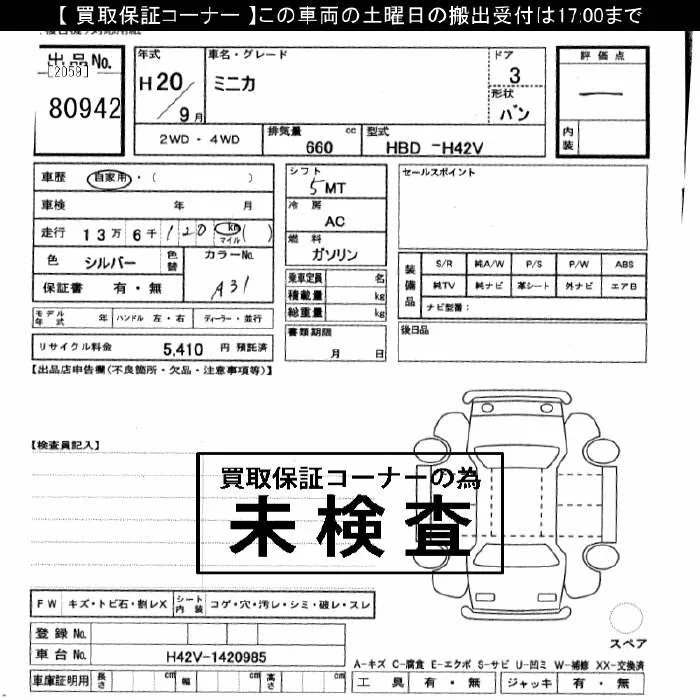 【 買取保証コーナー 】この車両の土曜日の搬出受付は17:00まで
出品No.
[2059]
80942
年式
H20
9月
車名・グレード
ミニカ
ドア
3
形状
バン
評価点
内装
2WD・4WD
排気量 660 cc
型式 HBD -H42V
車歴 自家用・( )
車検 年 月
走行 13万 6千 120 km マイル ( )
色 シルバー 色替
カラーNo. A31
保証書 有・無
シフト 5MT
冷房 AC
燃料 ガソリン
乗車定員 名
積載量 kg
総重量 kg
セールスポイント
装備品
S/R 純A/W P/S P/W ABS
純TV 純ナビ 革シート 外ナビ エアB
ナビ型番:
モデル年式 年 ハンドル 左・右 ディーラー・並行
書類期限 月 日
後日品
リサイクル料金 5,410 円 預託済
【出品店申告欄(不良箇所・欠品・注意事項等)】
【検査員記入】
買取保証コーナーの為
未検査
FW キズ・トビ石・割レX シート内装 コゲ・穴・汚レ・シミ・破レ・スレ
登録No.
車台No. H42V-1420985
車庫証明用 長さ cm 幅 cm 高さ cm
スペア
A-キズ C-腐食 E-エクボ S-サビ U-凹ミ W-補修 XX-交換済
工具 有・無 ジャッキ 有・無